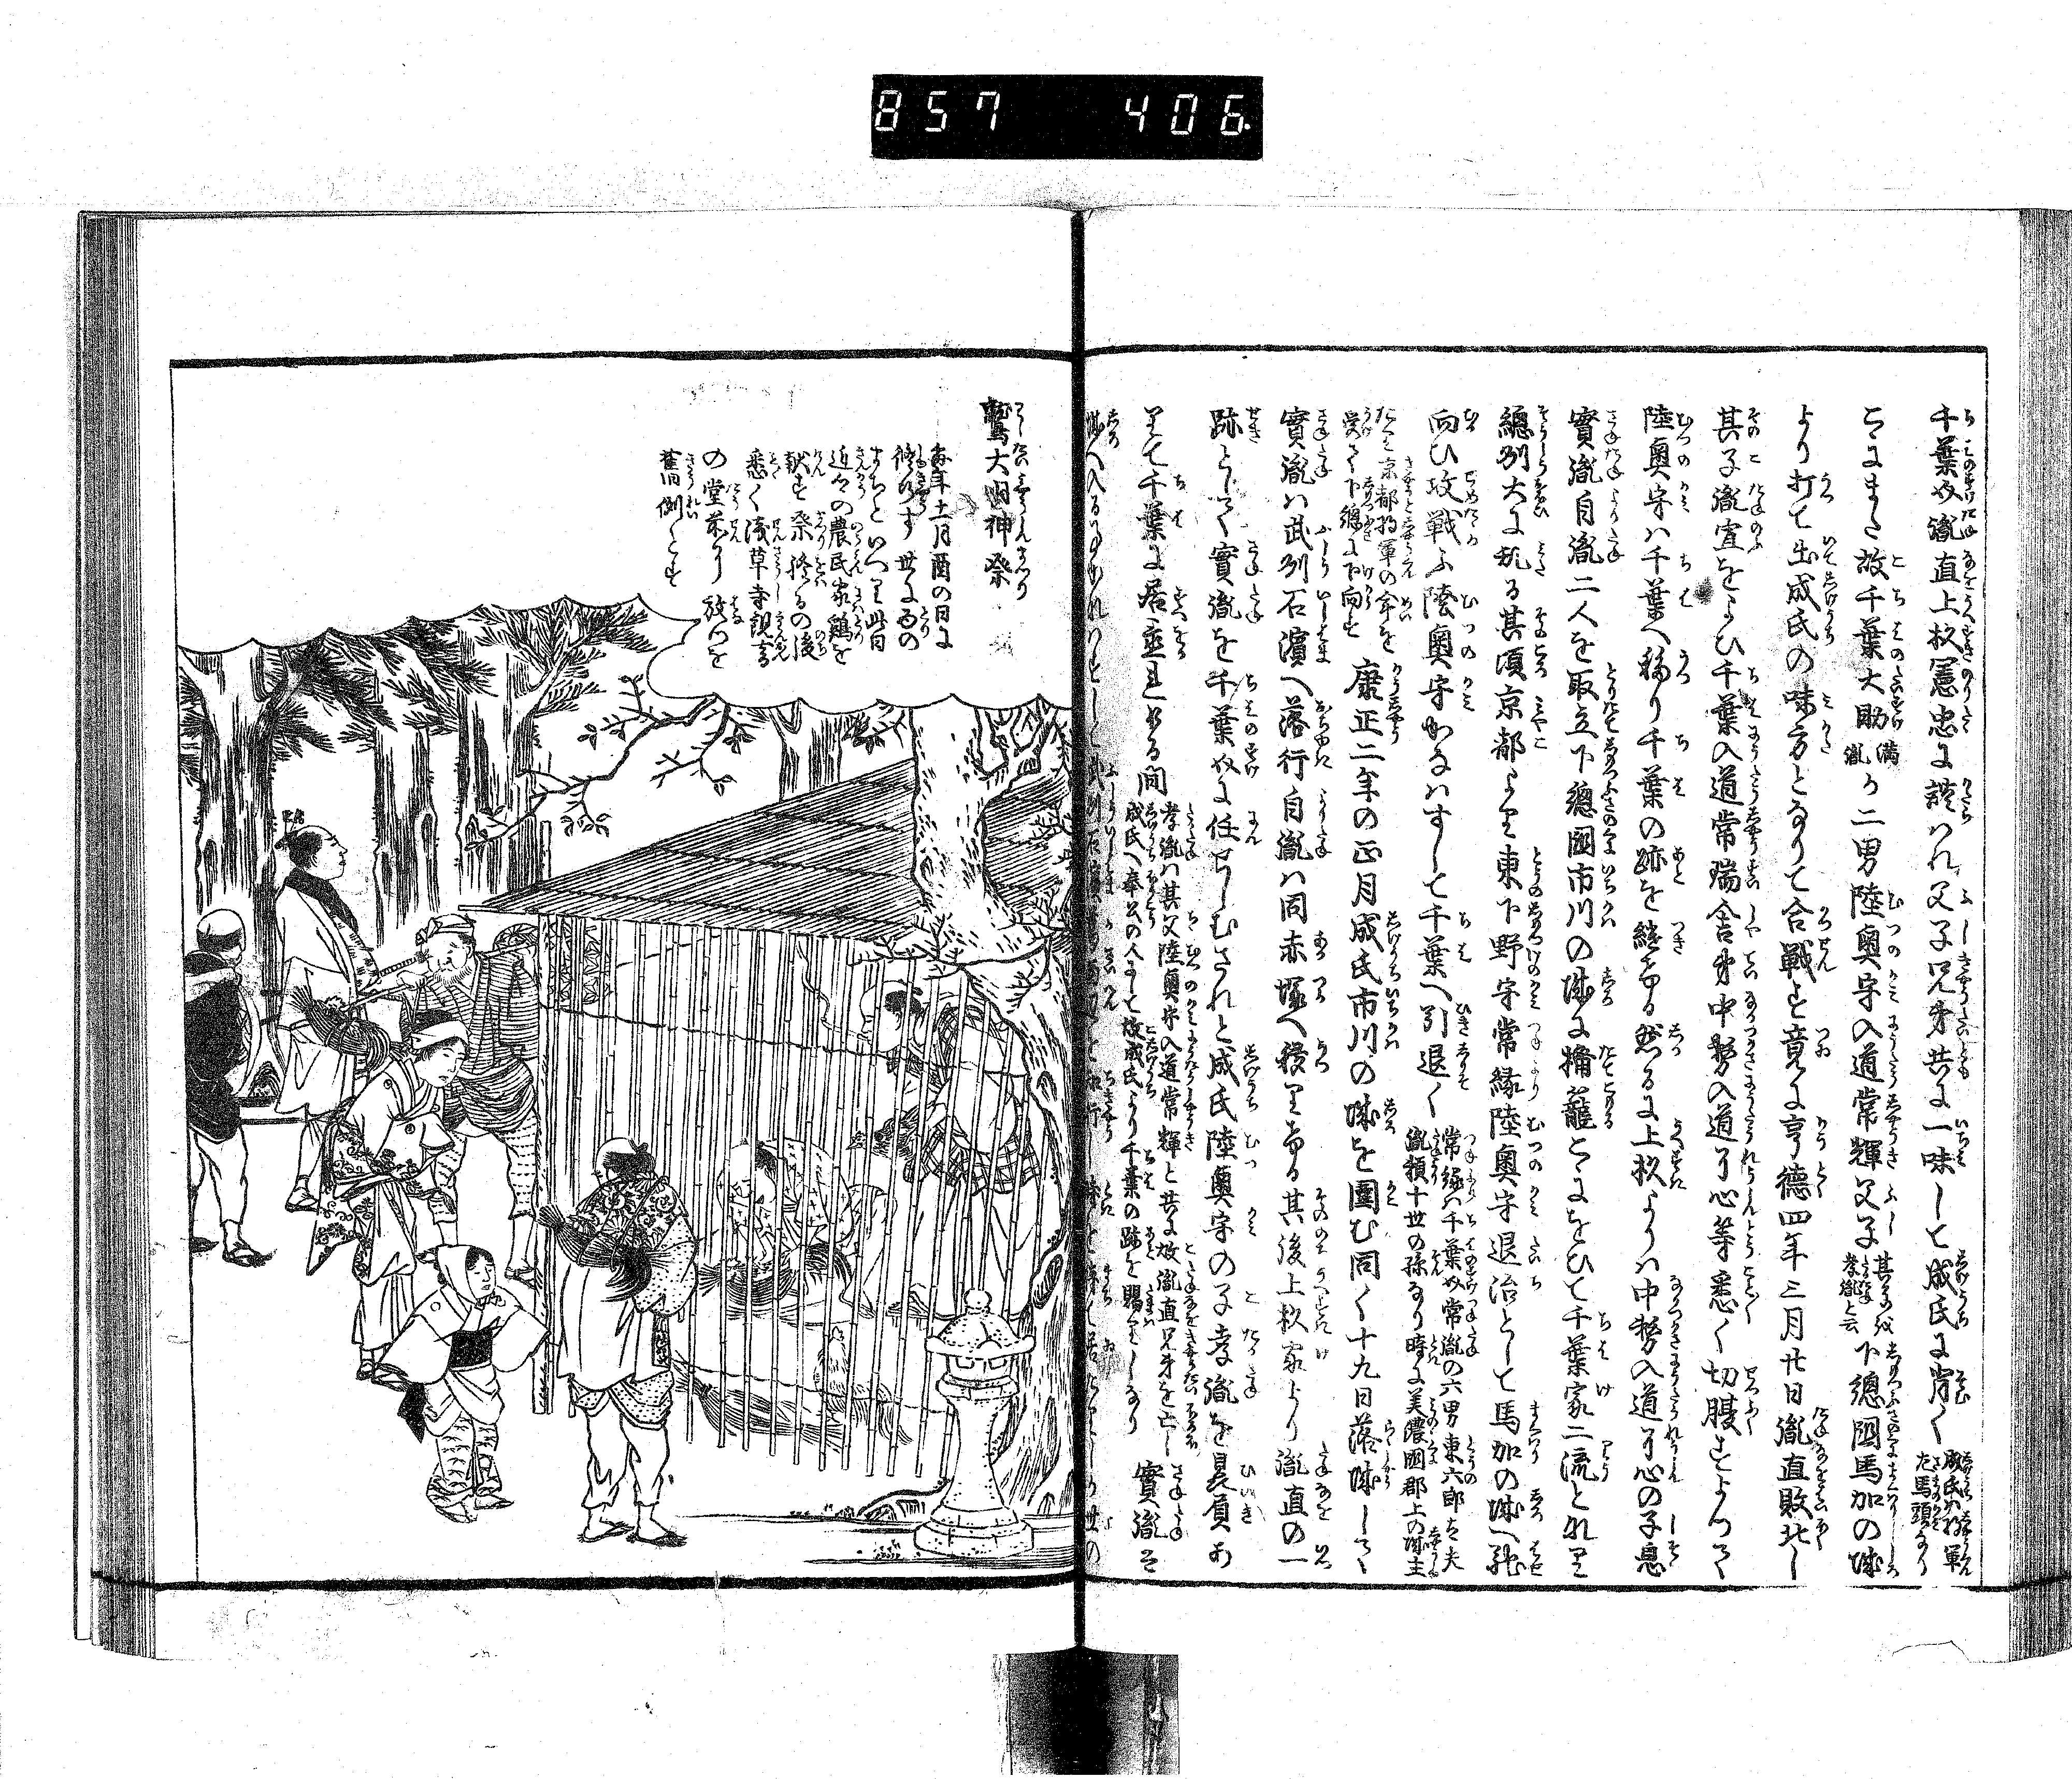 857 406
千葉介胤直上杦憲忠に語はれ父子兄弟共に一味して成氏に背く成氏ハ将軍
左馬頭なり
こゝにまた故千葉大助満
胤か二男陸奥守入道常輝父子其子の名
孝胤と云下總國馬加の城
より打て出成氏の味方となりて合戦す竟に亨徳四年三月廿日胤直敗北し
其子胤宣をよひ千葉入道常瑞舎弟中務入道了心等悉く切腹すよつて
陸奥守ハ千葉へ移り千葉の跡を継ける然るに上杦よりハ中務入道了心の子息
實胤自胤二人を取立下總國市川の城に楯籠こゝにをひて千葉家二流とわれ
總州大に乱る其頃京都より東下野守常縁陸奥守退治として馬加の城へ馳
向ひ攻戦ふ陸奥守かなハすして千葉へ引退く常縁ハ千葉介常胤の六男東六郎太夫
胤頼十世の孫なり時に美濃國郡上の城主
たり京都将軍の命を
受て下總に下向す康正二年の正月成氏市川の城を圍む同く十九日落城して
實胤ハ武州石濱へ落行自胤ハ同赤塚へ移りける其後上杦家より胤直の一
跡として實胤を千葉介に任せしむされと成氏陸奥守の子孝胤を晁負あ
りて千葉に居置しける間孝胤ハ其父陸奥守入道常輝と共に故胤直兄弟を亡し
成氏へ奉公の人にして故成氏より千葉の跡を賜りしなり實胤は
鷲大明神祭
毎年十一月酉の日に
修行す世に酉の
まちといへり此日
近々の農民家鶏を
献す祭終るの後
悉く淺草寺觀音
の堂前に放つを
舊例とす